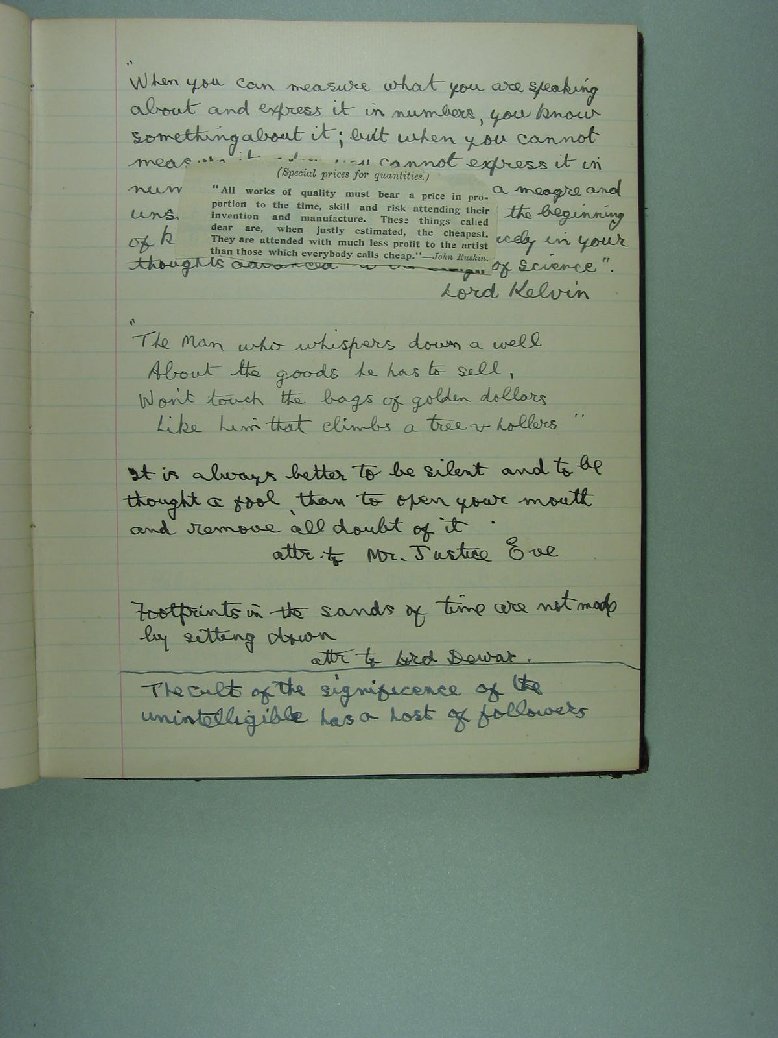 "When you can measure what you are speaking
about and express it in numbers, you know
something about it; but when you cannot
cannot express it in
(Special prices for quantities.)
"All works of quality must bear a price in pro-
portion to the time, skill and risk attending their
invention and manufacture. These things called
dear are, when justly estimated, the cheapest.
They are attended with much less profit to the artist
than those which everybody calls cheap."—John Ruskin.
a meagre and
the beginning
of in your
thoughts advanced of science".
Lord Kelvin
"The Man who whispers down a well
About the goods he has to sell,
Won't touch the bags of golden dollars
Like him that climbs a tree & hollers"
It is always better to be silent and to be
thought a fool, than to open your mouth
and remove all doubt of it.
attr. to Mr. Justice Eve
Footprints in the sands of time are not made
by sitting down
attr to Lord Dewar.
The cult of the significence of the
unintelligible has a host of followers